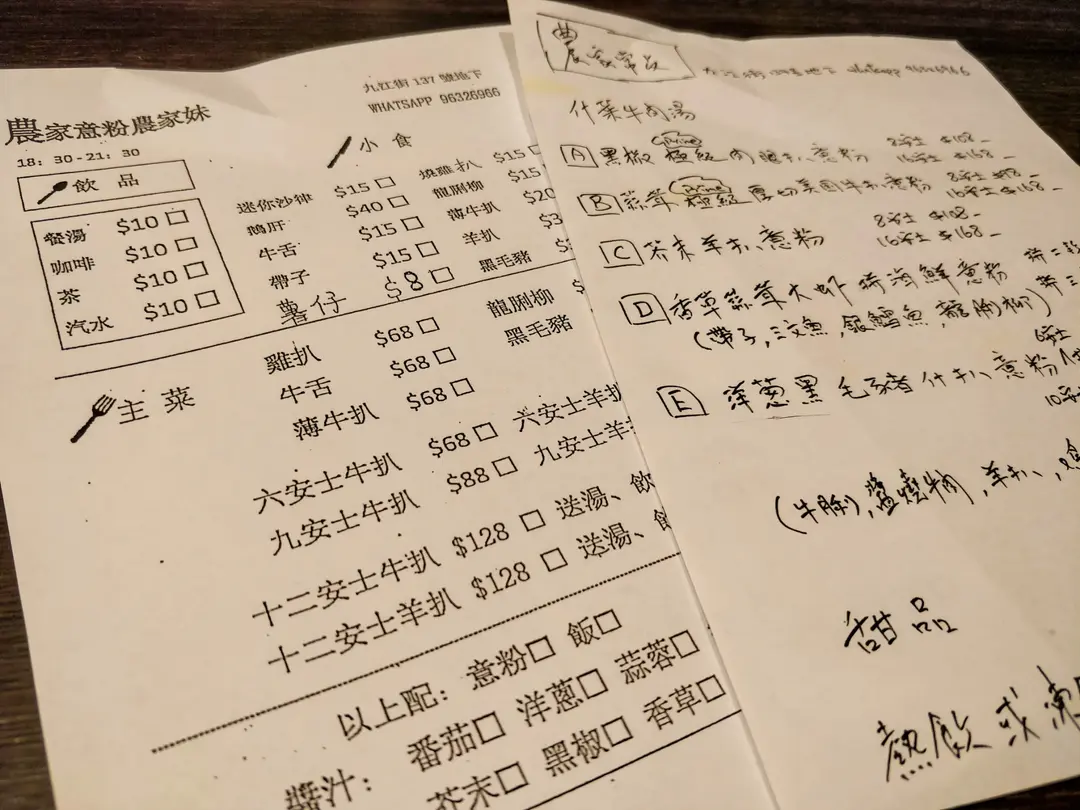 農家意粉農家妹
九江街 137 號地下
WHATSAPP 96326966
18：30-21：30
飲 品
餐湯 $10 □
咖啡 $10 □
茶 $10 □
汽水 $10 □
小 食
迷你沙律 $15 □ 燒雞扒 $15 □
鵝肝 $40 □ 龍脷柳 $15
牛舌 $15 □ 薄牛扒 $20
帶子 $15 □ 羊扒
薯仔 $8 □ 黑毛豬
主 菜
雞扒 $68 □ 龍脷柳
牛舌 $68 □ 黑毛豬
薄牛扒 $68 □
六安士牛扒 $68 □ 六安士羊扒
九安士牛扒 $88 □ 九安士羊扒
十二安士牛扒 $128 □ 送湯、飲
十二安士羊扒 $128 □ 送湯、
以上配： 意粉□ 飯□
醬汁： 番茄□ 洋蔥□ 蒜蓉□
芥末□ 黑椒□ 香草□
農家
whatsapp 96326966
什菜牛肉湯
A 黑椒 Prime 極級肉眼扒意粉 8安士 $108
16安士 $168
B 蒜茸 Prime 極級厚切美國牛扒意粉 8安士
16安士 $168
C 芥末羊扒意粉 8安士 $108
16安士 $168
D 香草蒜茸大虾 海鮮意粉
(帶子,三文魚,銀鱈魚,龍脷柳)
E 洋蔥黑毛豬什扒意粉 6安士
甜品
熱飲或凍